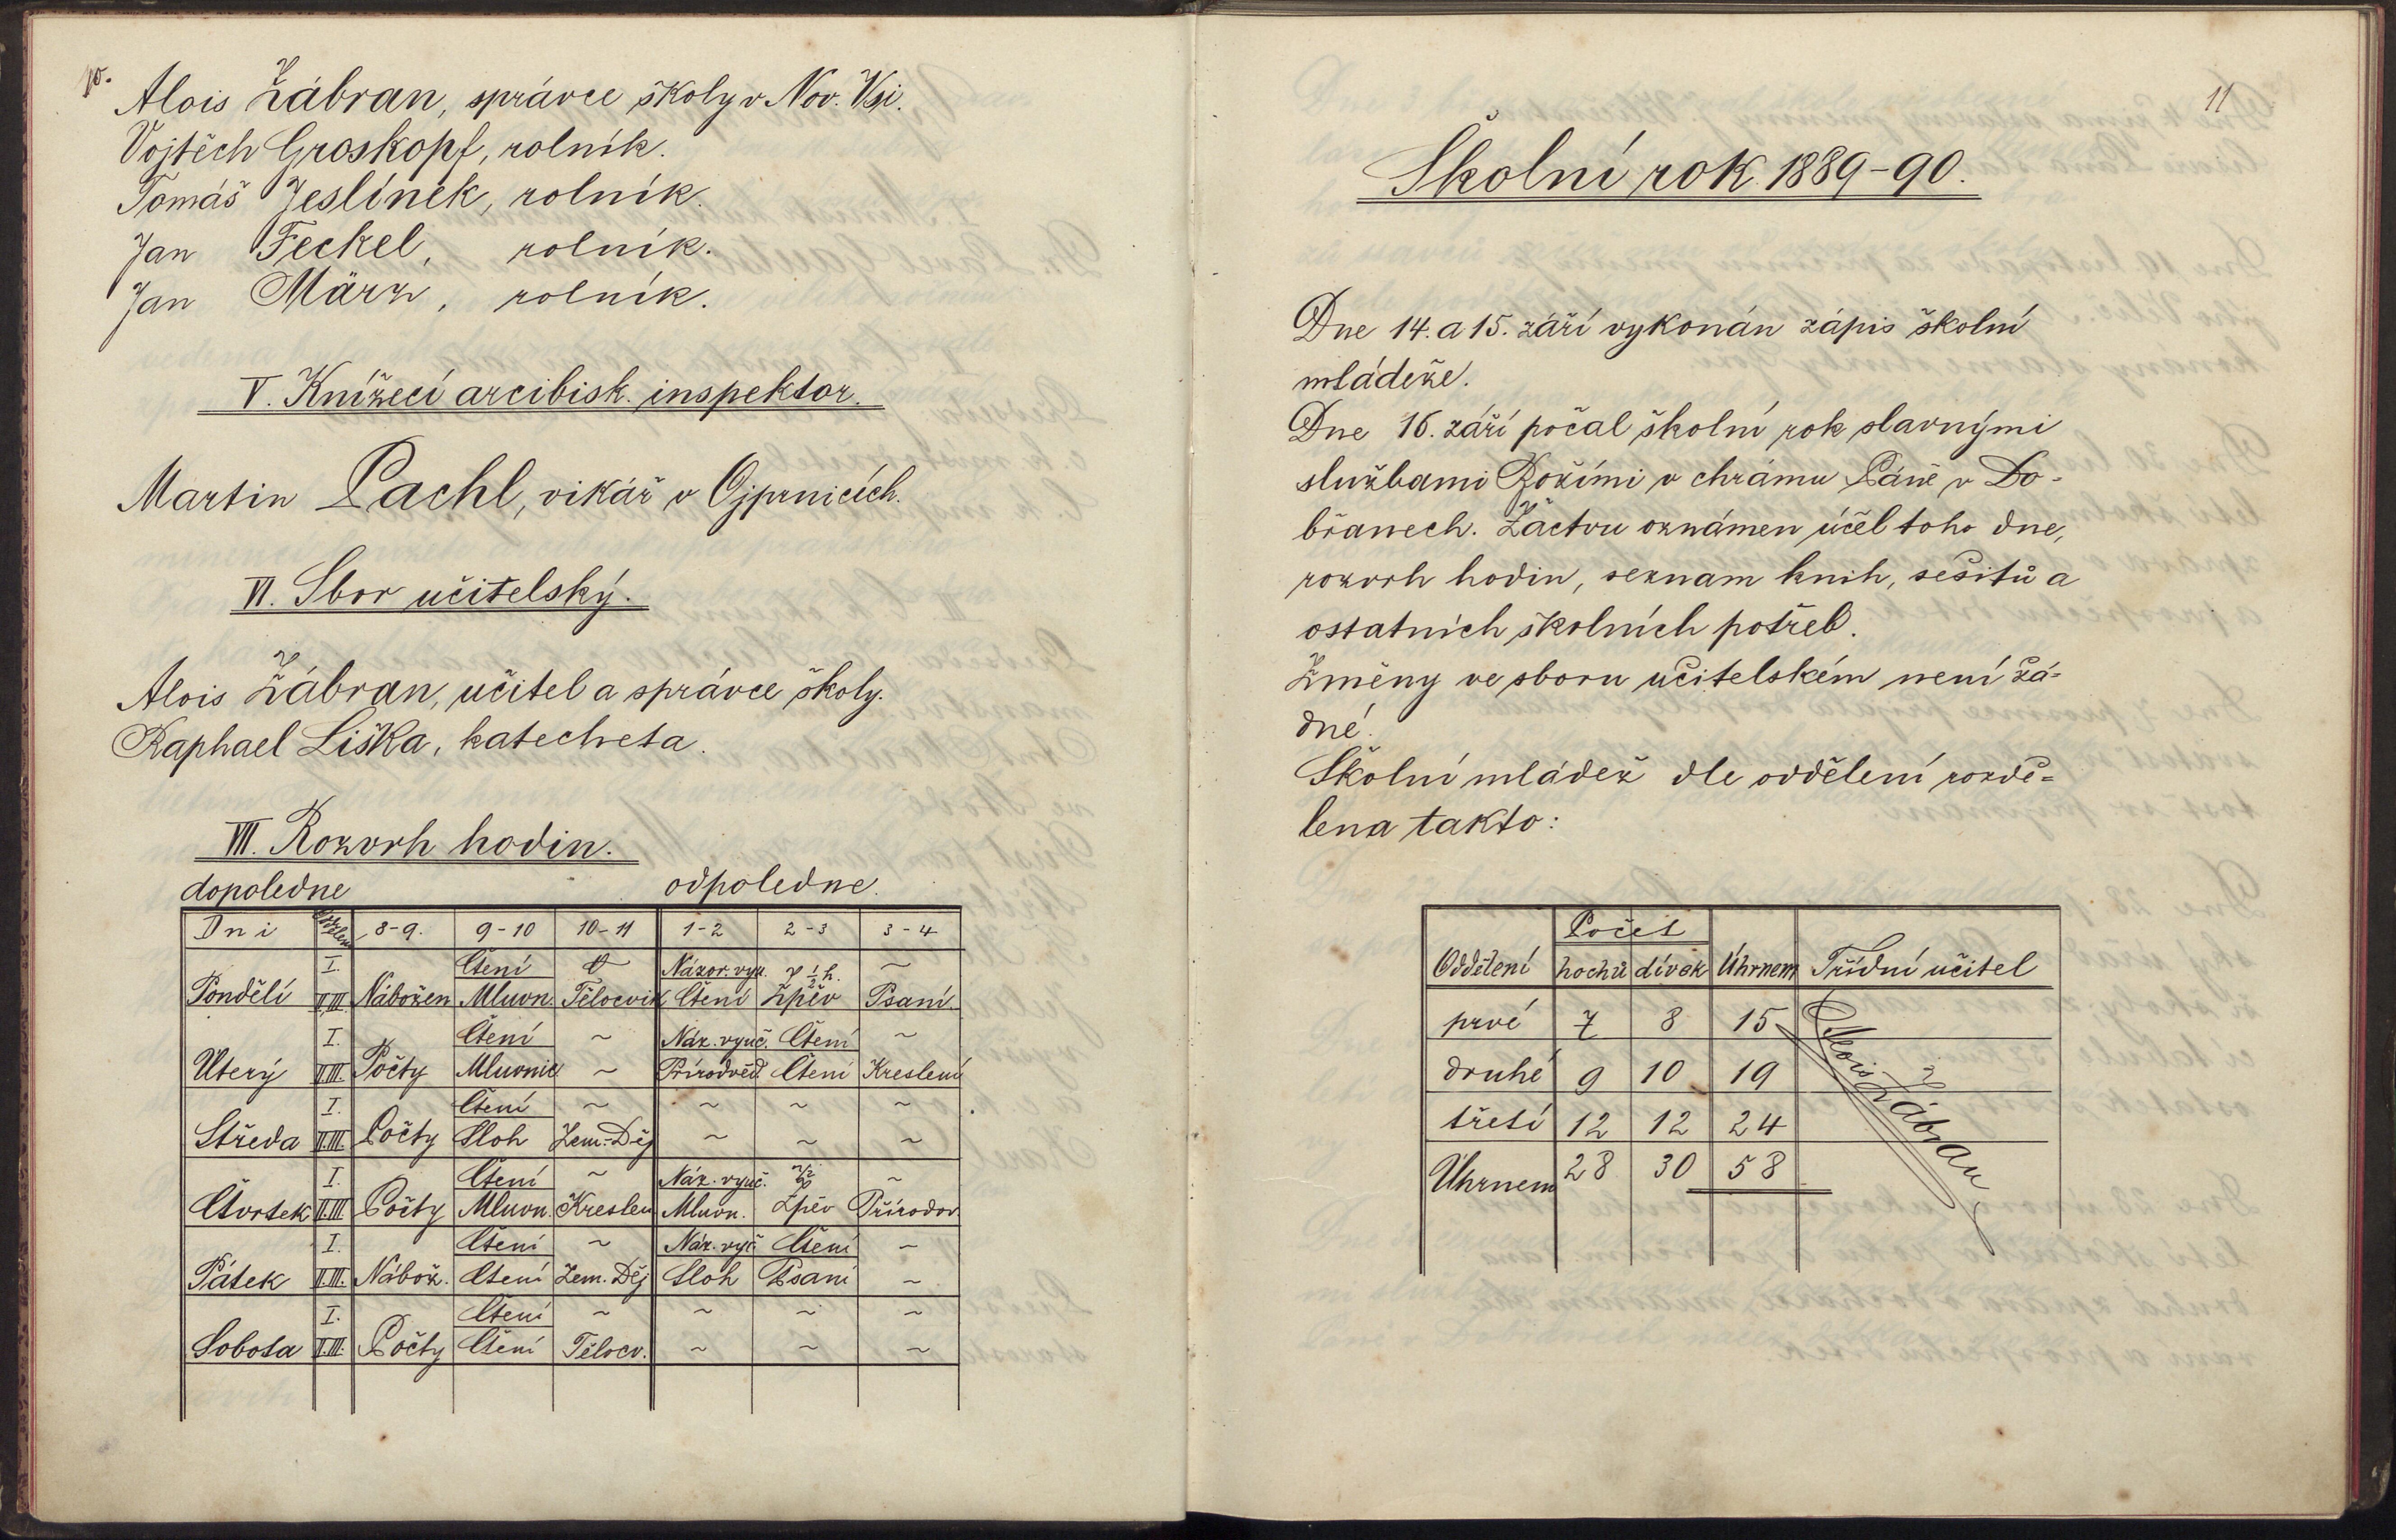 10.
Alois Zábran, správce školy v Nov. Vsi.
Vojtěch Groskopf, rolník.
Tomáš Jeslínek, rolník.
Jan Feckel, rolník.
Jan März, rolník.
V. Knížecí arcibisk. inspektor.
Martin Pachl, vikář v Ojprnicích.
VI. Sbor učitelský.
Alois Zábran, učitel a správce školy.
Raphael Liška, katecheta.
VII. Rozvrh hodin.
dopoledne odpoledne.
Dni 8-9. 9-10 10-11 1-2 2-3 3-4
I. Čtení Názor. vyu. v ½ h. ~
Pondělí II.III. Nábožen Mluvn. Tělocvik Čtení Zpěv Psaní.
I. Čtení ~ Náz. vyuč. Čtení ~
Úterý II.III. Počty Mluvnic ~ Přírodvěd. Čtení Kreslení
I. Čtení ~ ~ ~ ~
Středa II.III. Počty Sloh Zem.-Děj ~ ~ ~
I. Čtení ~ Náz. vyuč. ~
Čtvrtek II.III. Počty Mluvn. Kreslen Mluvn. Zpěv Přírodov
I. Čtení ~ Náz. vyč. Čtení ~
Pátek II.III. Nábož. Čtení Zem. Děj Sloh Psaní ~
I. Čtení ~ ~ ~ ~
Sobota II.III. Počty Čtení Tělocv. ~ ~ ~
11
Školní rok 1889-90.
Dne 14. a 15. září vykonán zápis školní
mládeže.
Dne 16. září počal školní rok slavnými
službami Božími v chrámu Páně v Do-
břanech. Žactvu oznámen účel toho dne,
rozvrh hodin, seznam knih, sešitů a
ostatních školních potřeb.
Změny ve sboru učitelském není žá-
dné.
Školní mládež dle oddělení rozdě-
lena takto:
Počet
Oddělení hochů dívek Úhrnem Třídní učitel
prvé 7 8 15 Alois Zábran
druhé 9 10 19
třetí 12 12 24
Úhrnem 28 30 58